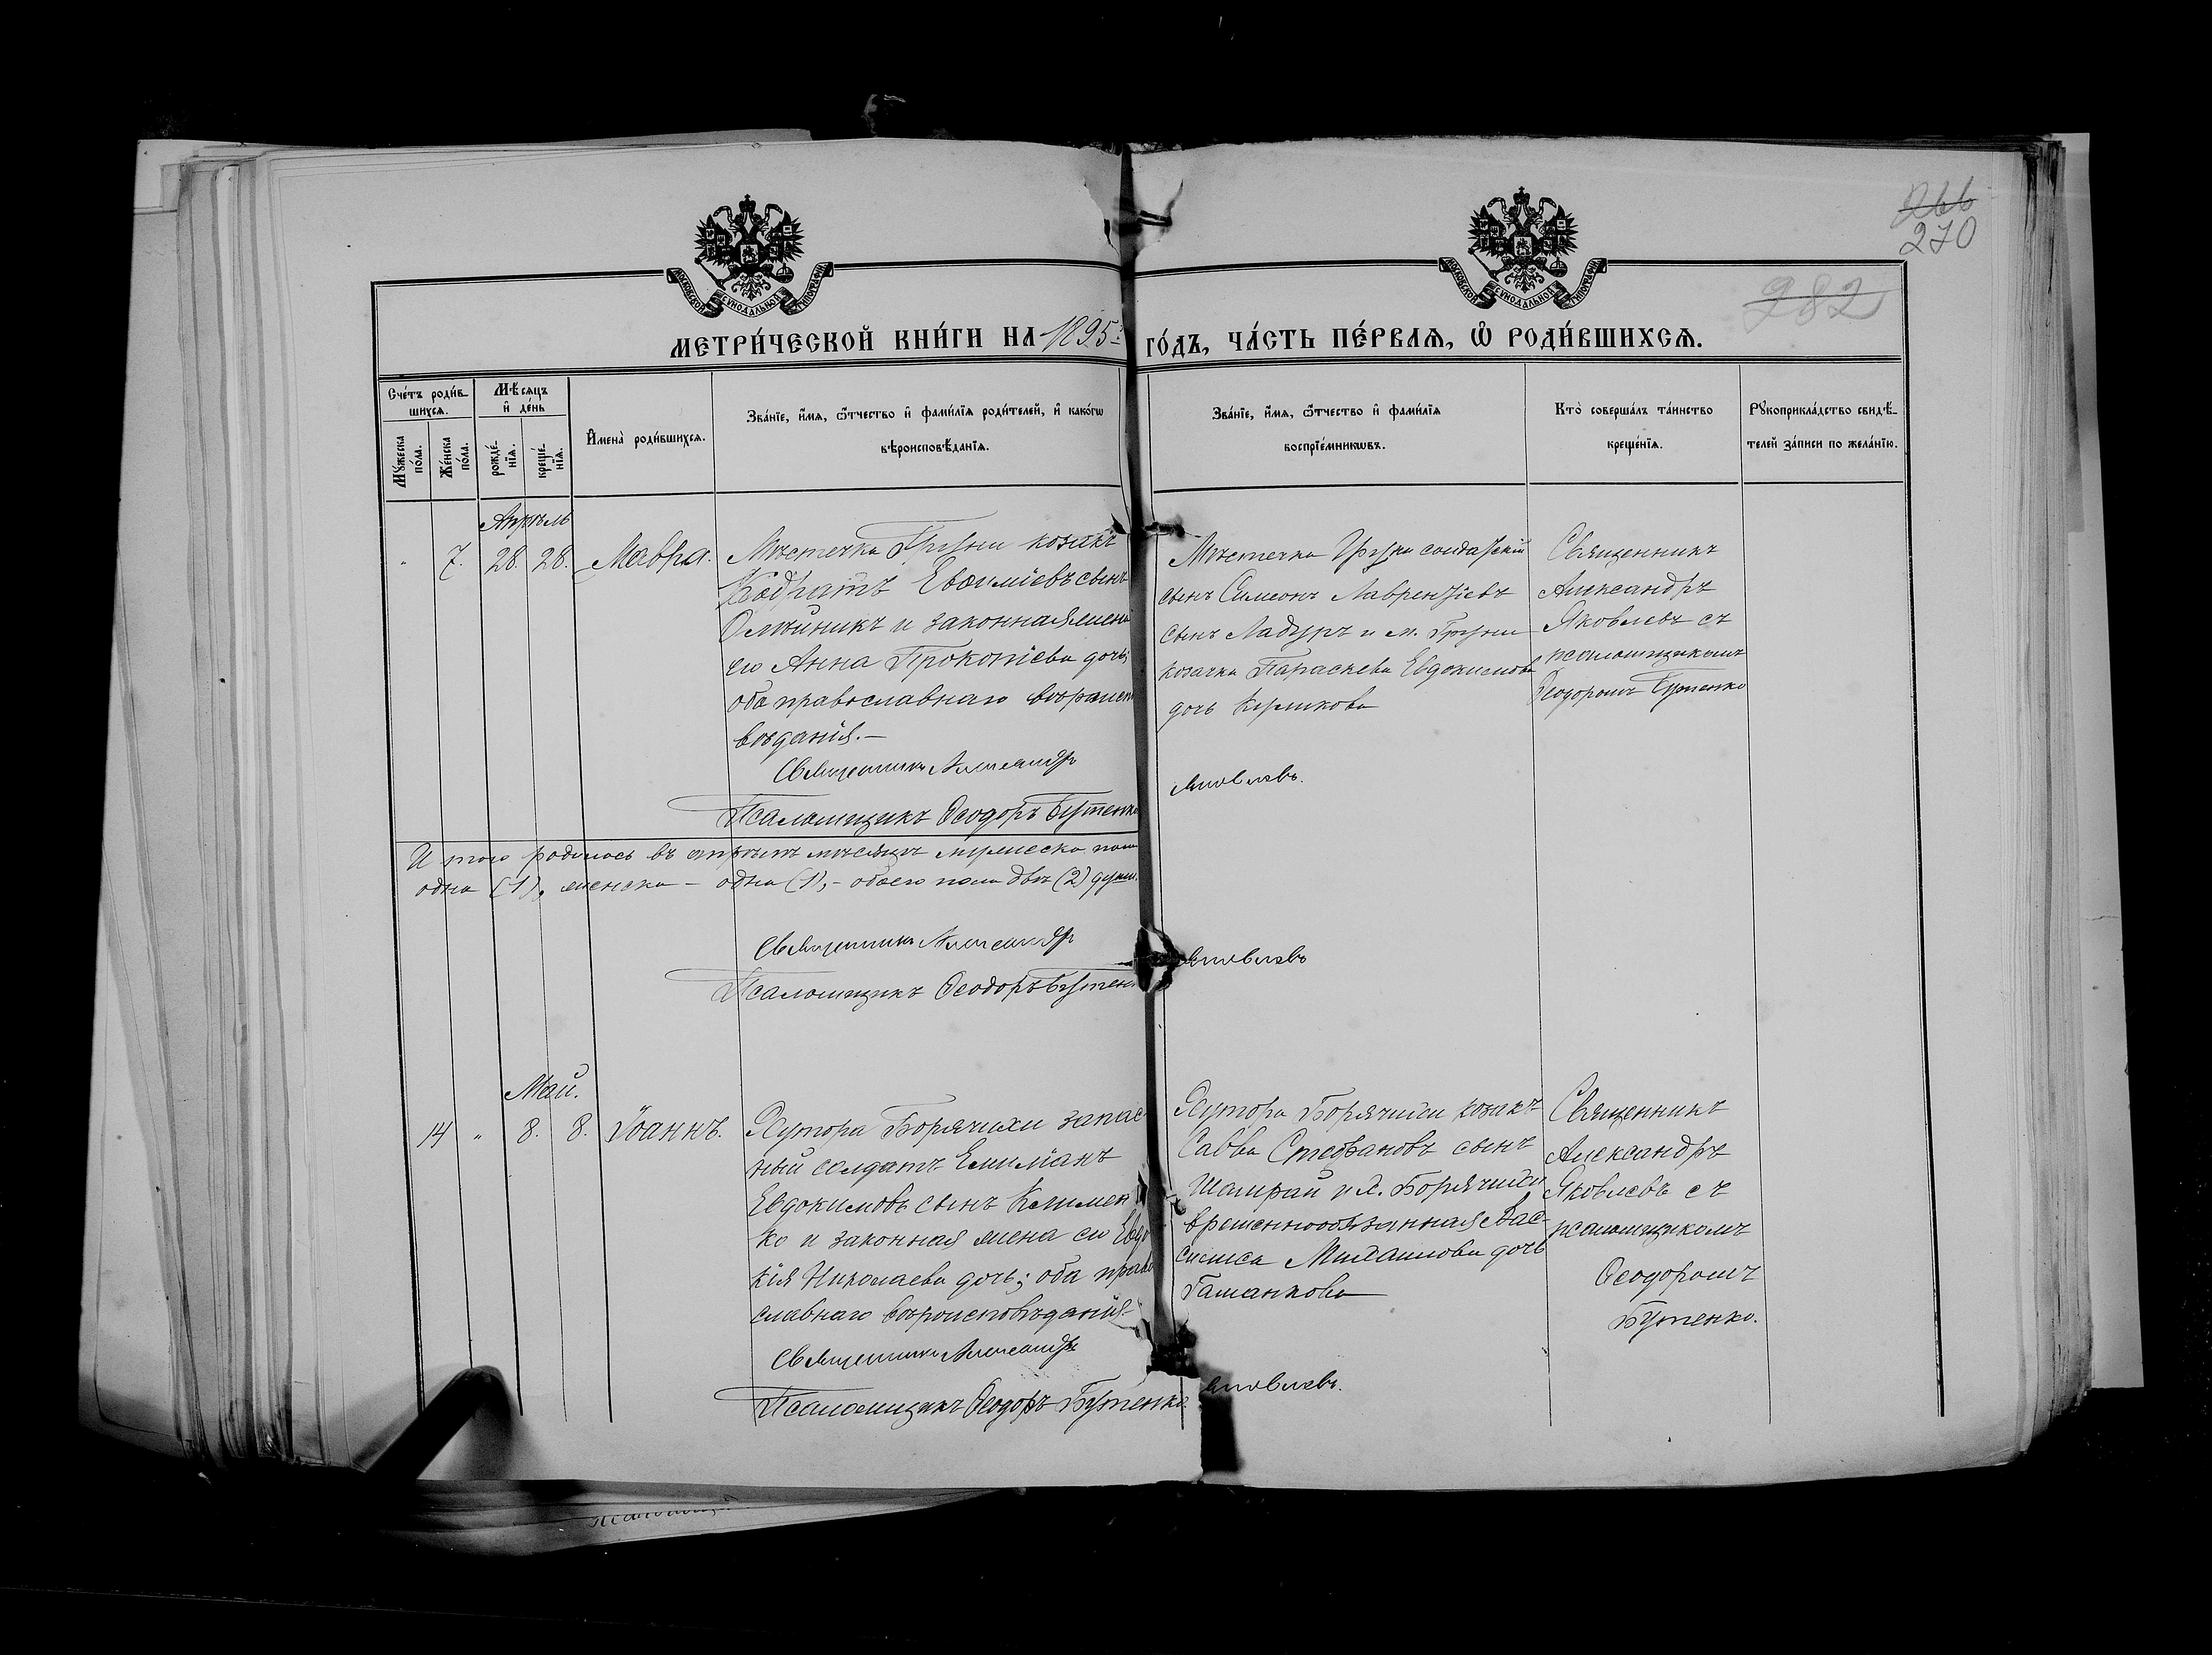 270
282
МОСКОВСКОЙ СУНОДАЛЬНОЙ ТИПОГРАФІИ
МОСКОВСКОЙ СУНОДАЛЬНОЙ ТИПОГРАФІИ
МЕТРИ́ЧЕСКОЙ КНИ́ГИ НА 1895 ГО́ДЪ, ЧА́СТЬ ПЕ́РВАѦ, Ѡ҆ РОДИ́ВШИХСѦ.
Сче́тъ роди́в-
шихсѧ.
Мꙋ́жеска по́ла.
Же́нска по́ла.
Мѣ́сѧцъ
и҆ де́нь
рожде́-нїѧ.
креще́-нїѧ.
И҆мена̀ роди́вшихсѧ.
Зва́нїе, и҆́мѧ, ѻ҆́тчество и҆ фами́лїѧ роди́телей, и҆ како́гѡ
вѣроисповѣ́данїѧ.
Зва́нїе, и҆́мѧ, ѻ҆́тчество и҆ фами́лїѧ
воспрїе́мникѡвъ.
Кто̀ соверша́лъ та́инство
креще́нїѧ.
Рꙋкоприкла́дство свидѣ́-
телей за́писи по жела́нїю.
Апрѣль
" 7. 28. 28. Мавра.
Мѣстечка Груни козакъ
Кодратъ Евѳиміевъ сынъ
Олѣйникъ и законная жена
его Анна Прокопіева дочь;
оба православнаго вѣроиспо
вѣданія.—
Священникъ Александръ
Псаломщикъ Ѳеодоръ Бутенко
Мѣстечка Груни солдатскій
сынъ Симеонъ Лаврентіевъ
сынъ Ладуръ и м. Груни
козачка Параскева Евдокимова
дочь
Яковлевъ.
Священникъ
Александръ
Яковлевъ съ
псаломщикомъ
Ѳеодоромъ Бутенко
И того родилось въ апрѣлѣ мѣсяцѣ мужеска пола
одна (1), женска — одна (1), — обоего пола двѣ (2) души.
Священникъ Александръ Яковлевъ
Псаломщикъ Ѳеодоръ Бутенко
Май.
14 " 8. 8. Іоаннъ.
Хутора Борячихи запас
ный солдатъ Емиліанъ
Евдокимовъ сынъ Клімен
ко и законная жена его Евдо
кія Николаева дочь; оба право
славнаго вѣроисповѣданія.
Священникъ Александръ
Псаломщикъ Ѳеодоръ Бутенко.
Хутора Борячихи козакъ
Савва Стефановъ сынъ
Шамрай и х. Борячихи
временнообязанная Вас-
силиса Михаилова дочь
Гашанкова
Яковлевъ.
Священникъ
Александръ
Яковлевъ съ
псаломщикомъ
Ѳеодоромъ
Бутенко.